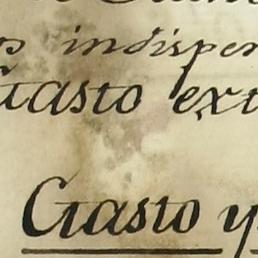 indispen
Gasto ext
Gasto y